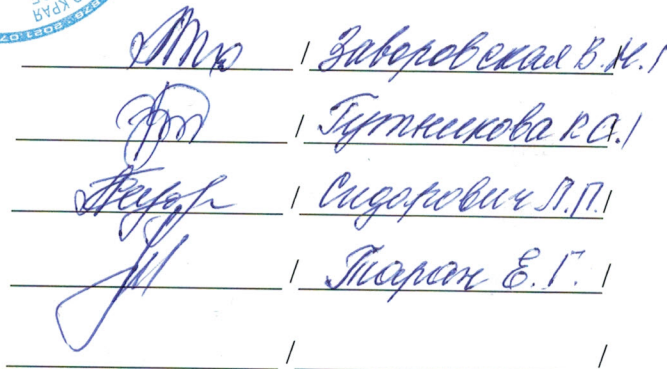 КРАЯ
/ Заворовская В.Н. /
/ Гутникова Р.А. /
/ Сидорович Л.П. /
/ Таран Е.Г. /
/ /